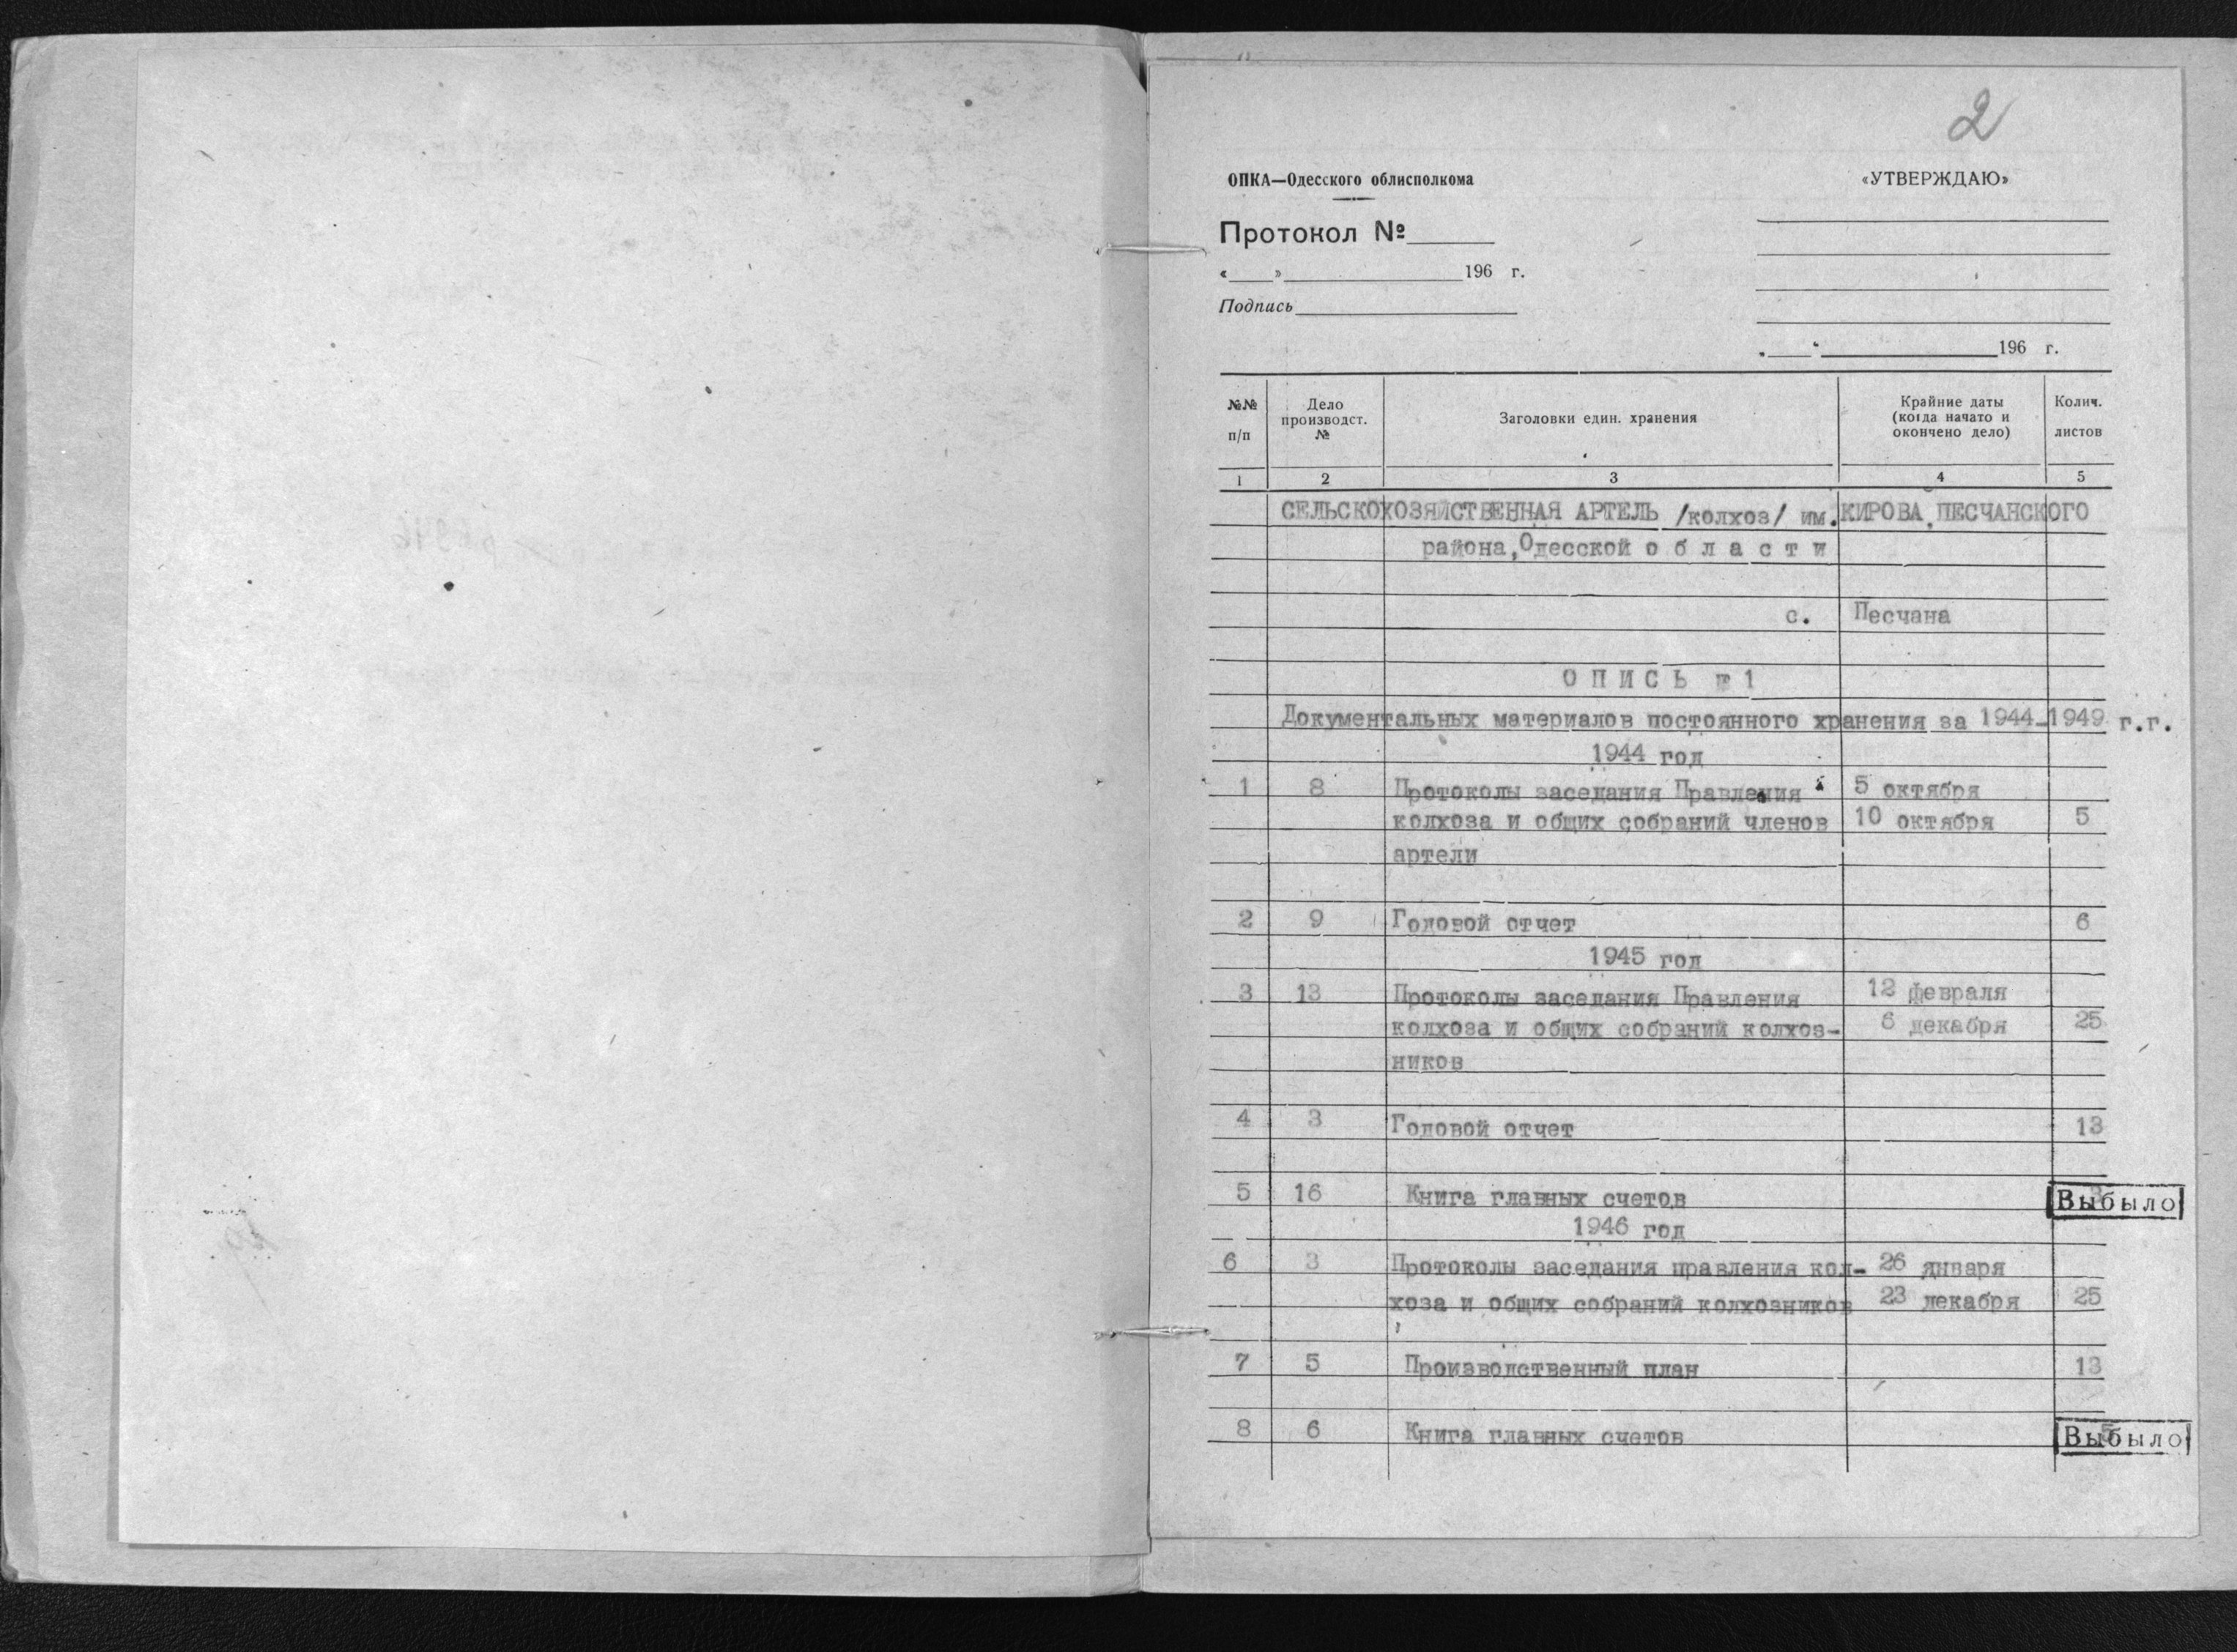 2
ОПКА—Одесского облисполкома
«УТВЕРЖДАЮ»
Протокол №
« » 196 г.
Подпись
„ “ 196 г.
№№ п/п
Дело производст. №
Заголовки един. хранения
Крайние даты (когда начато и окончено дело)
Колич. листов
1 2 3 4 5
СЕЛЬСКОХОЗЯЙСТВЕННАЯ АРТЕЛЬ /колхоз/ им. КИРОВА, ПЕСЧАНСКОГО
района, Одесской о б л а с т и
с. Песчана
О П И С Ь № 1
Документальных материалов постоянного хранения за 1944-1949 г.г.
1944 год
1 8 Протоколы заседания Правления 5 октября
колхоза и общих собраний членов 10 октября 5
артели
2 9 Годовой отчет 6
1945 год
3 13 Протоколы заседания Правления 12 февраля
колхоза и общих собраний колхоз- 6 декабря 25
ников
4 3 Годовой отчет 13
5 16 Книга главных счетов Выбыло
1946 год
6 3 Протоколы заседания правления кол- 26 января
хоза и общих собраний колхозников 23 декабря 25
7 5 Производственный план 13
8 6 Книга главных счетов Выбыло